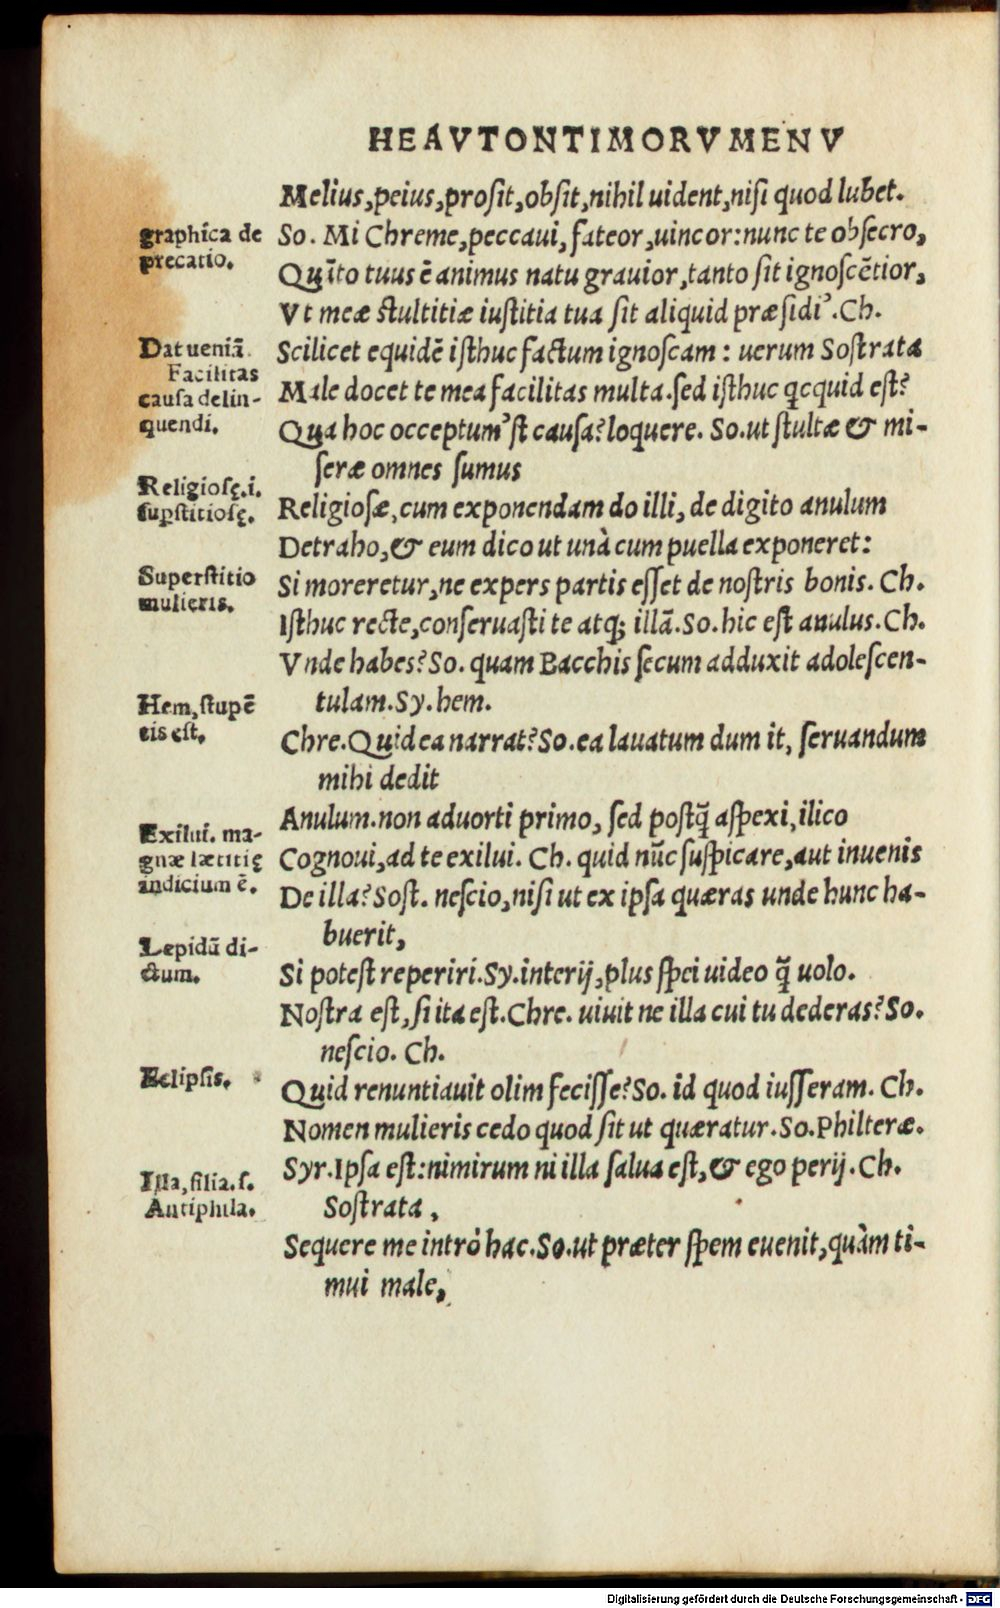 HEAVTONTIMORVMENV
Melius,peius,prosit,obsit,nihil uident,nisi quod lubet.
graphica de
precatio.
So. Mi Chreme,peccaui,fateor,uincor:nunc te obsecro,
Quāto tuus ē animus natu grauior,tanto sit ignoscētior,
Vt meæ stultitiæ iustitia tua sit aliquid præsidi'.Ch.
Dat ueniā.
Facilitas
causa delin-
quendi.
Scilicet equidē isthuc factum ignoscam: uerum Sostrata
Male docet te mea facilitas multa.sed isthuc qcquid est?
Qua hoc occeptum'st causa?loquere. So.ut stultæ & mi-
seræ omnes sumus
Religiosę.i.
supstitiosę.
Religiosæ,cum exponendam do illi, de digito anulum
Detraho,& eum dico ut unà cum puella exponeret:
Superstitio
mulieris.
Si moreretur,ne expers partis esset de nostris bonis. Ch.
Isthuc recte,conseruasti te atq; illā.So.hic est anulus.Ch.
Vnde habes?So. quam Bacchis secum adduxit adolescen-
tulam.Sy.hem.
Hem,stupē
tis est.
Chre.Quid ea narrat?So.ea lauatum dum it, seruandum
mihi dedit
Anulum.non aduorti primo, sed postq̄ aspexi,ilico
Exilui. ma-
gnæ lætitię
indicium ē.
Cognoui,ad te exilui. Ch. quid nūc suspicare,aut inuenis
De illa?Sost. nescio,nisi ut ex ipsa quæras unde hunc ha-
buerit,
Lepidū di-
ctum.
Si potest reperiri.Sy.interij,plus spei uideo q̄ uolo.
Nostra est,si ita est.Chre. uiuit ne illa cui tu dederas?So.
nescio. Ch.
Eclipsis.
Quid renuntiauit olim fecisse?So. id quod iusseram. Ch.
Nomen mulieris cedo quod sit ut quæratur.So.Philteræ.
Illa,filia.s.
Antiphila.
Syr.Ipsa est:nimirum ni illa salua est,& ego perij.Ch.
Sostrata,
Sequere me intrò hac.So.ut præter spem euenit,quàm ti-
mui male,
Digitalisierung gefördert durch die Deutsche Forschungsgemeinschaft - DFG